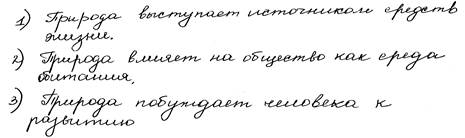 1) Природа выступает источником средств
жизни.
2) Природа влияет на общество как среда
обитания.
3) Природа побуждает человека к
развитию